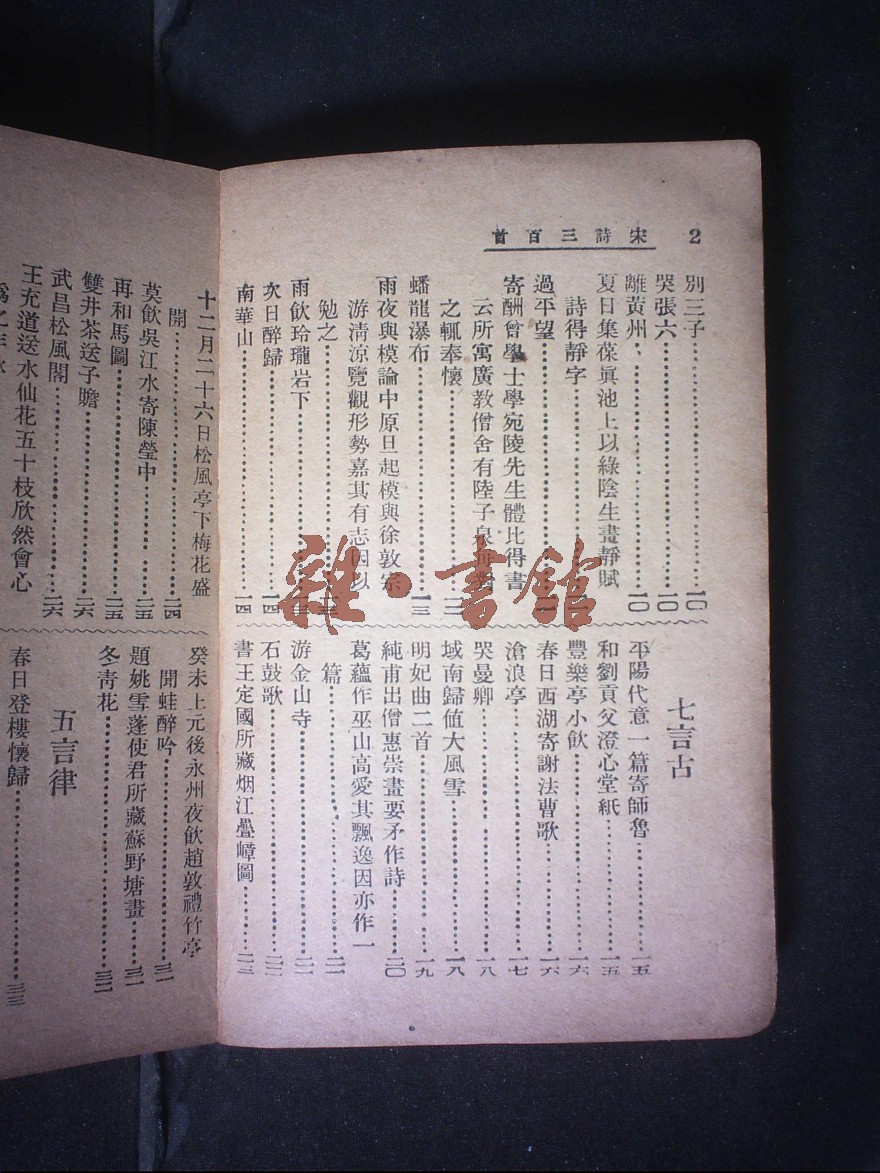 2 宋詩三百首
別三子……一〇
哭張六……一〇
離黃州……一〇
夏日集葆眞池上以綠陰生晝靜賦
詩得靜字……一一
過平望……
寄酬曾學士學宛陵先生體比得書
云所寓廣教僧舍有陸子泉每對
之輒奉懷……一二
蟠龍瀑布……一三
雨夜與模論中原旦起模與徐敦宗
游淸涼覽觀形勢嘉其有志因以
勉之……
雨飲玲瓏岩下……
次日醉歸……一四
南華山……一四
七言古
平陽代意一篇寄師魯……一五
和劉貢父澄心堂紙……一五
豐樂亭小飲……一六
春日西湖寄謝法曹歌……一六
滄浪亭……一七
哭曼卿……一八
城南歸值大風雪……一八
明妃曲二首……一九
純甫出僧惠崇畫要予作詩……二〇
葛蘊作巫山高愛其飄逸因亦作一
篇……二一
游金山寺……二一
石鼓歌……二二
書王定國所藏烟江疊嶂圖……二三
十二月二十六日松風亭下梅花盛
開……二四
莫飲吳江水寄陳瑩中……二五
再和馬圖……二五
雙井茶送子瞻……二六
武昌松風閣……二六
王充道送水仙花五十枝欣然會心
癸未上元後永州夜飲趙敦禮竹亭
聞蛙醉吟……三一
題姚雪蓬使君所藏蘇野塘畫……三一
冬靑花……三二
五言律
春日登樓懷歸……三三
雜·書館